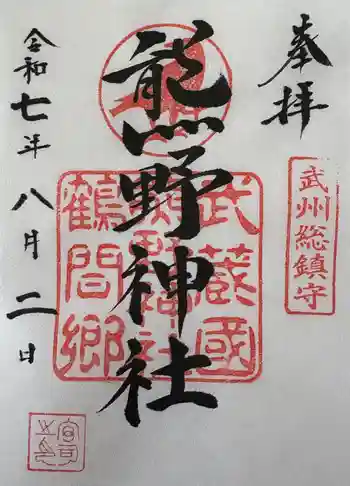 奉拝
武州総鎮守
熊野神社
武蔵國
鶴間郷
令和七年八月二日